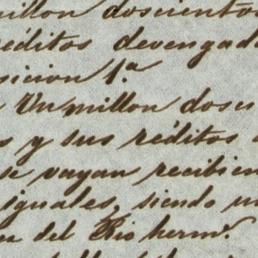 illon doscientos
réditos devengad
sicion 1.ª
Un millon dosci
s y sus réditos
se vayan recibien
iguales, siendo u
del Rio herm.